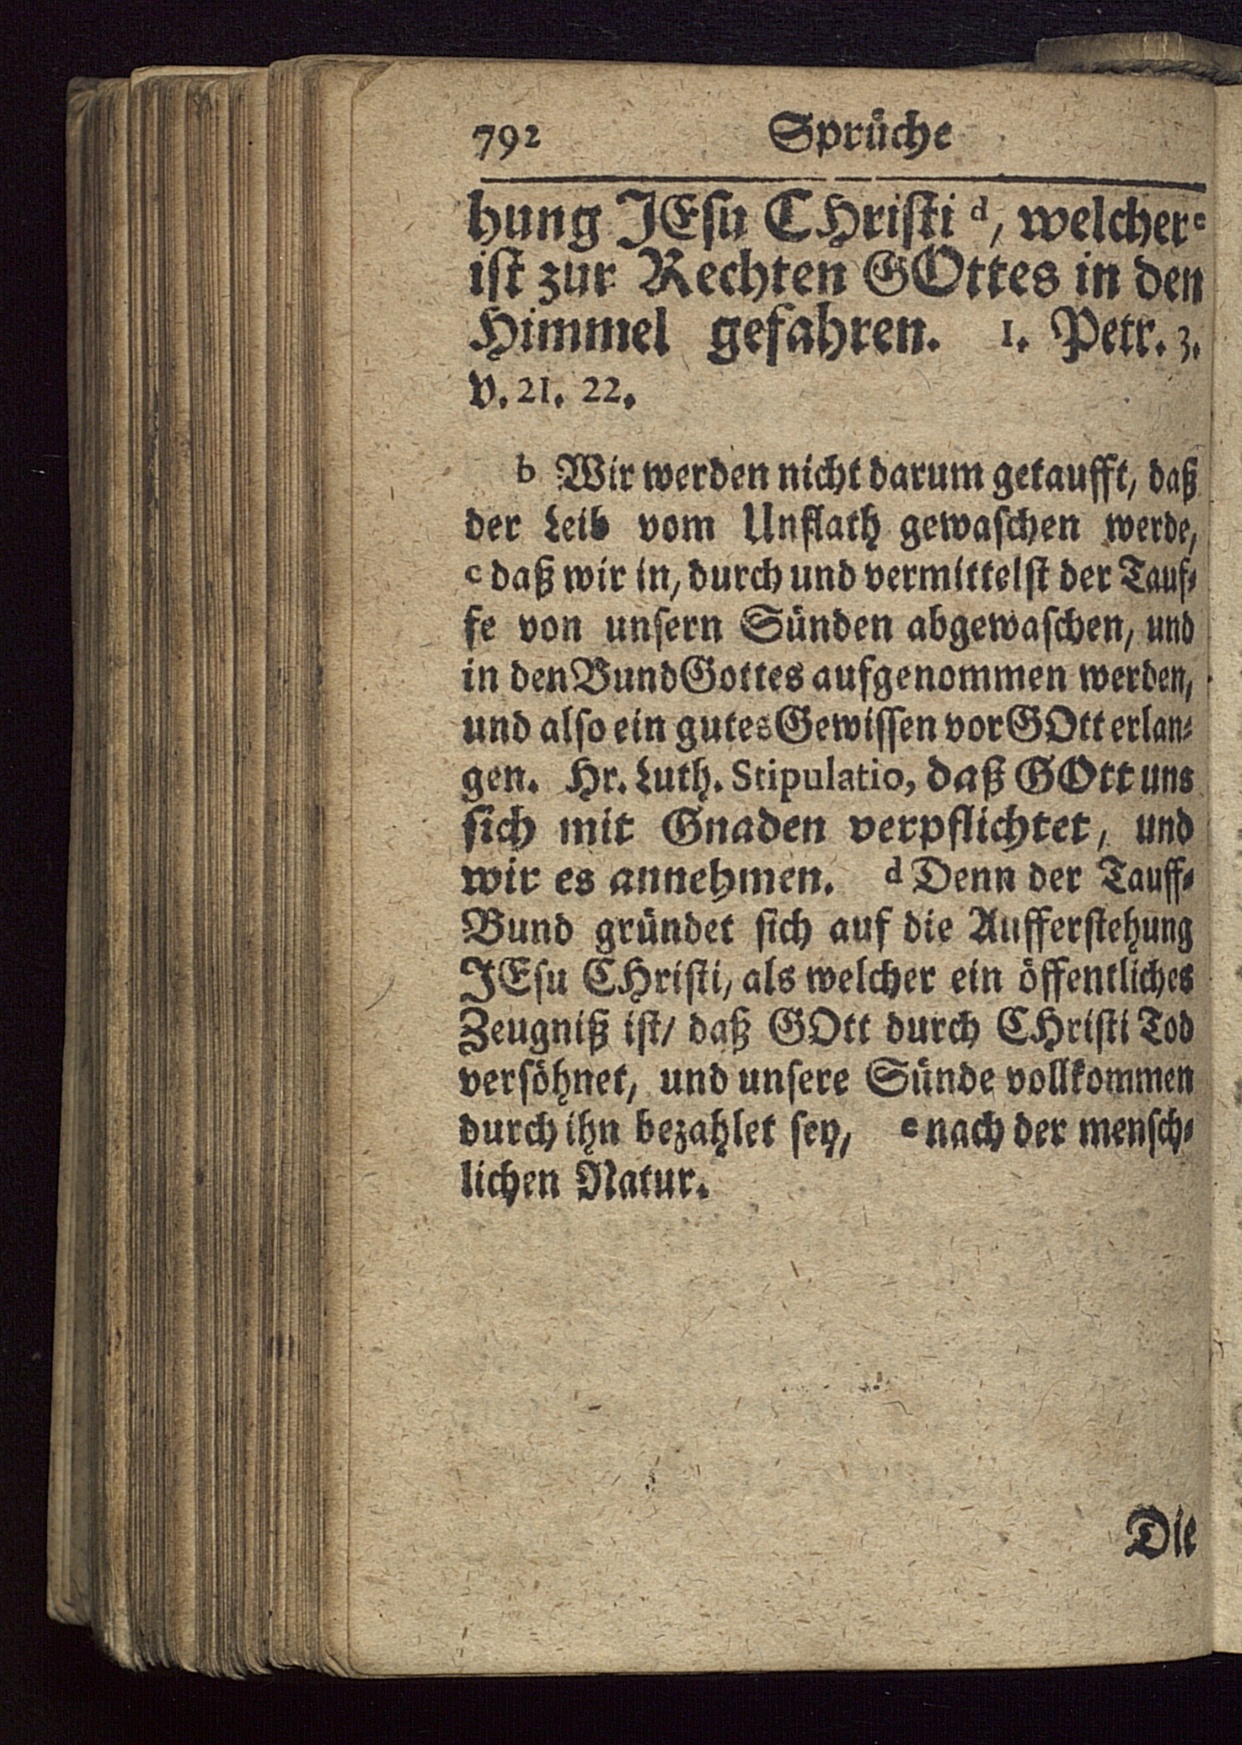 792 Sprüche
hung JEsu CHristi d, welcher e
ist zur Rechten GOttes in den
Himmel gefahren. 1. Petr. 3.
v. 21. 22.
b Wir werden nicht darum getaufft, daß
der Leib vom Unflath gewaschen werde,
c daß wir in, durch und vermittelst der Tauf-
fe von unsern Sünden abgewaschen, und
in den Bund Gottes aufgenommen werden,
und also ein gutes Gewissen vor GOtt erlan-
gen. Hr. Luth. Stipulatio, daß GOtt uns
sich mit Gnaden verpflichtet, und
wir es annehmen. d Denn der Tauff-
Bund gründet sich auf die Aufferstehung
JEsu CHristi, als welcher ein öffentliches
Zeugniß ist/ daß GOtt durch CHristi Tod
versöhnet, und unsere Sünde vollkommen
durch ihn bezahlet sey, e nach der mensch-
lichen Natur.
Die